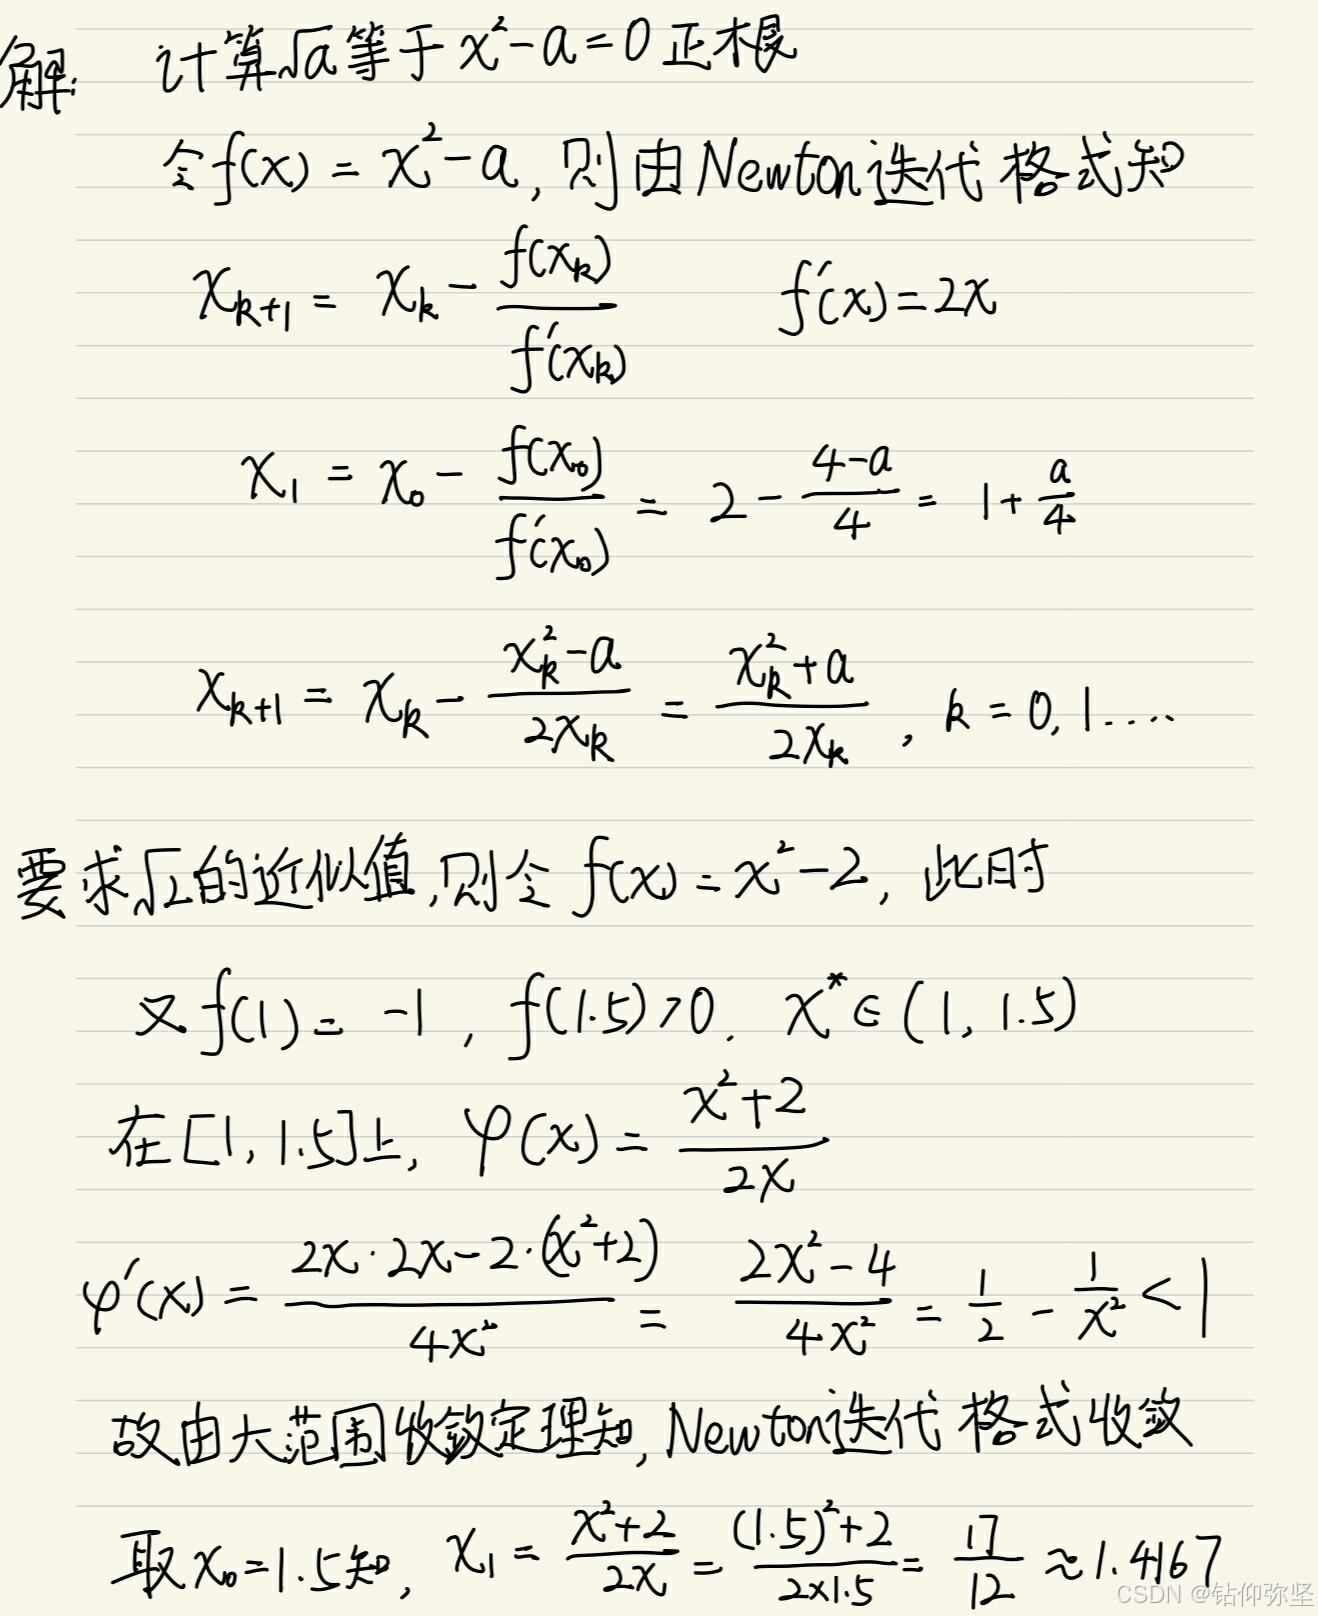 解: 计算√a等于 x²-a=0正根
令f(x) = x²-a, 则由Newton迭代格式知
x_{k+1} = x_k - f(x_k)/f'(x_k)    f'(x)=2x
x₁ = x₀ - f(x₀)/f'(x₀) = 2 - (4-a)/4 = 1+a/4
x_{k+1} = x_k - (x_k²-a)/(2x_k) = (x_k²+a)/(2x_k), k=0,1....
要求√2的近似值,则令 f(x)=x²-2, 此时
又f(1)= -1, f(1.5)>0. x*∈(1, 1.5)
在[1, 1.5]上, φ(x) = (x²+2)/(2x)
φ'(x) = (2x·2x-2·(x²+2))/(4x²) = (2x²-4)/(4x²) = 1/2 - 1/x² < 1
故由大范围收敛定理知, Newton迭代格式收敛
取x₀=1.5知, x₁ = (x²+2)/(2x) = ((1.5)²+2)/(2×1.5) = 17/12 ≈1.4167
CSDN @钻仰弥坚